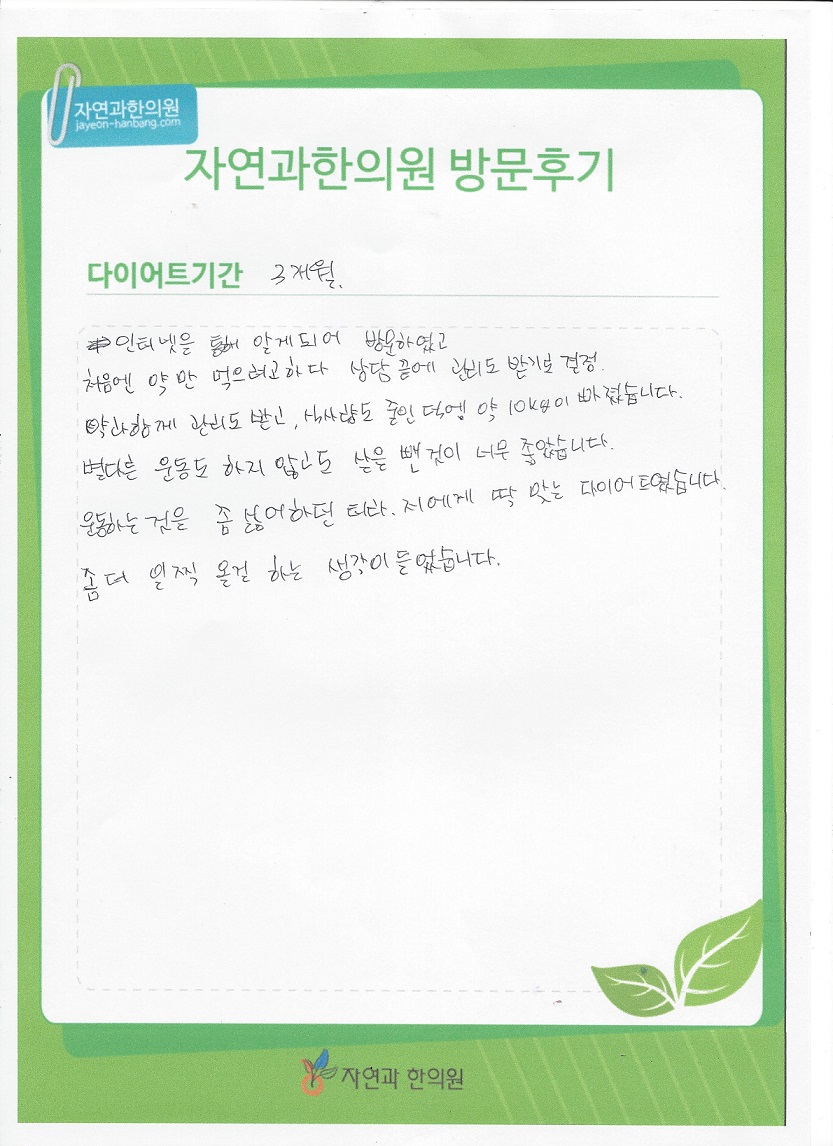 자연과한의원
jayeon-hanbang.com
자연과한의원 방문후기
다이어트기간 3개월.
인터넷을 통해 알게되어 방문하였고
처음엔 약만 먹으려고하다 상담 끝에 관리도 받기로 결정.
약과함께 관리도 받고, 식사량도 줄인 덕에 약 10kg이 빠졌습니다.
별다른 운동도 하지 않고도 살을 뺀것이 너무 좋았습니다.
운동하는것을 좀 싫어하던 터라. 저에게 딱 맞는 다이어트였습니다.
좀더 일찍 올걸 하는 생각이 들었습니다.
자연과 한의원